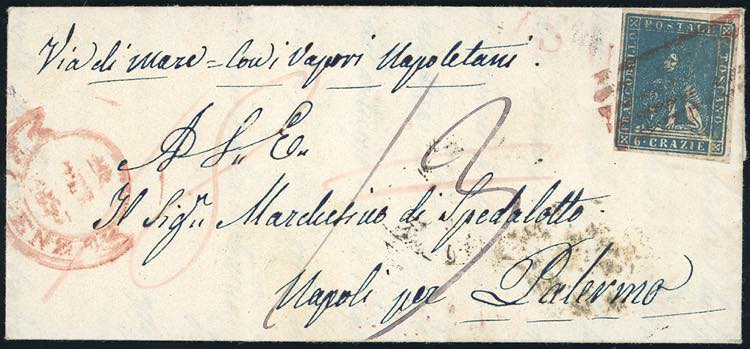 Via di mare = Con i Vapori Napoletani.
FRANCOBOLLO POSTALE TOSCANO
6 CRAZIE
A S. E.
Il Sig.r Marchesino di Spedalotto
Napoli per Palermo
13